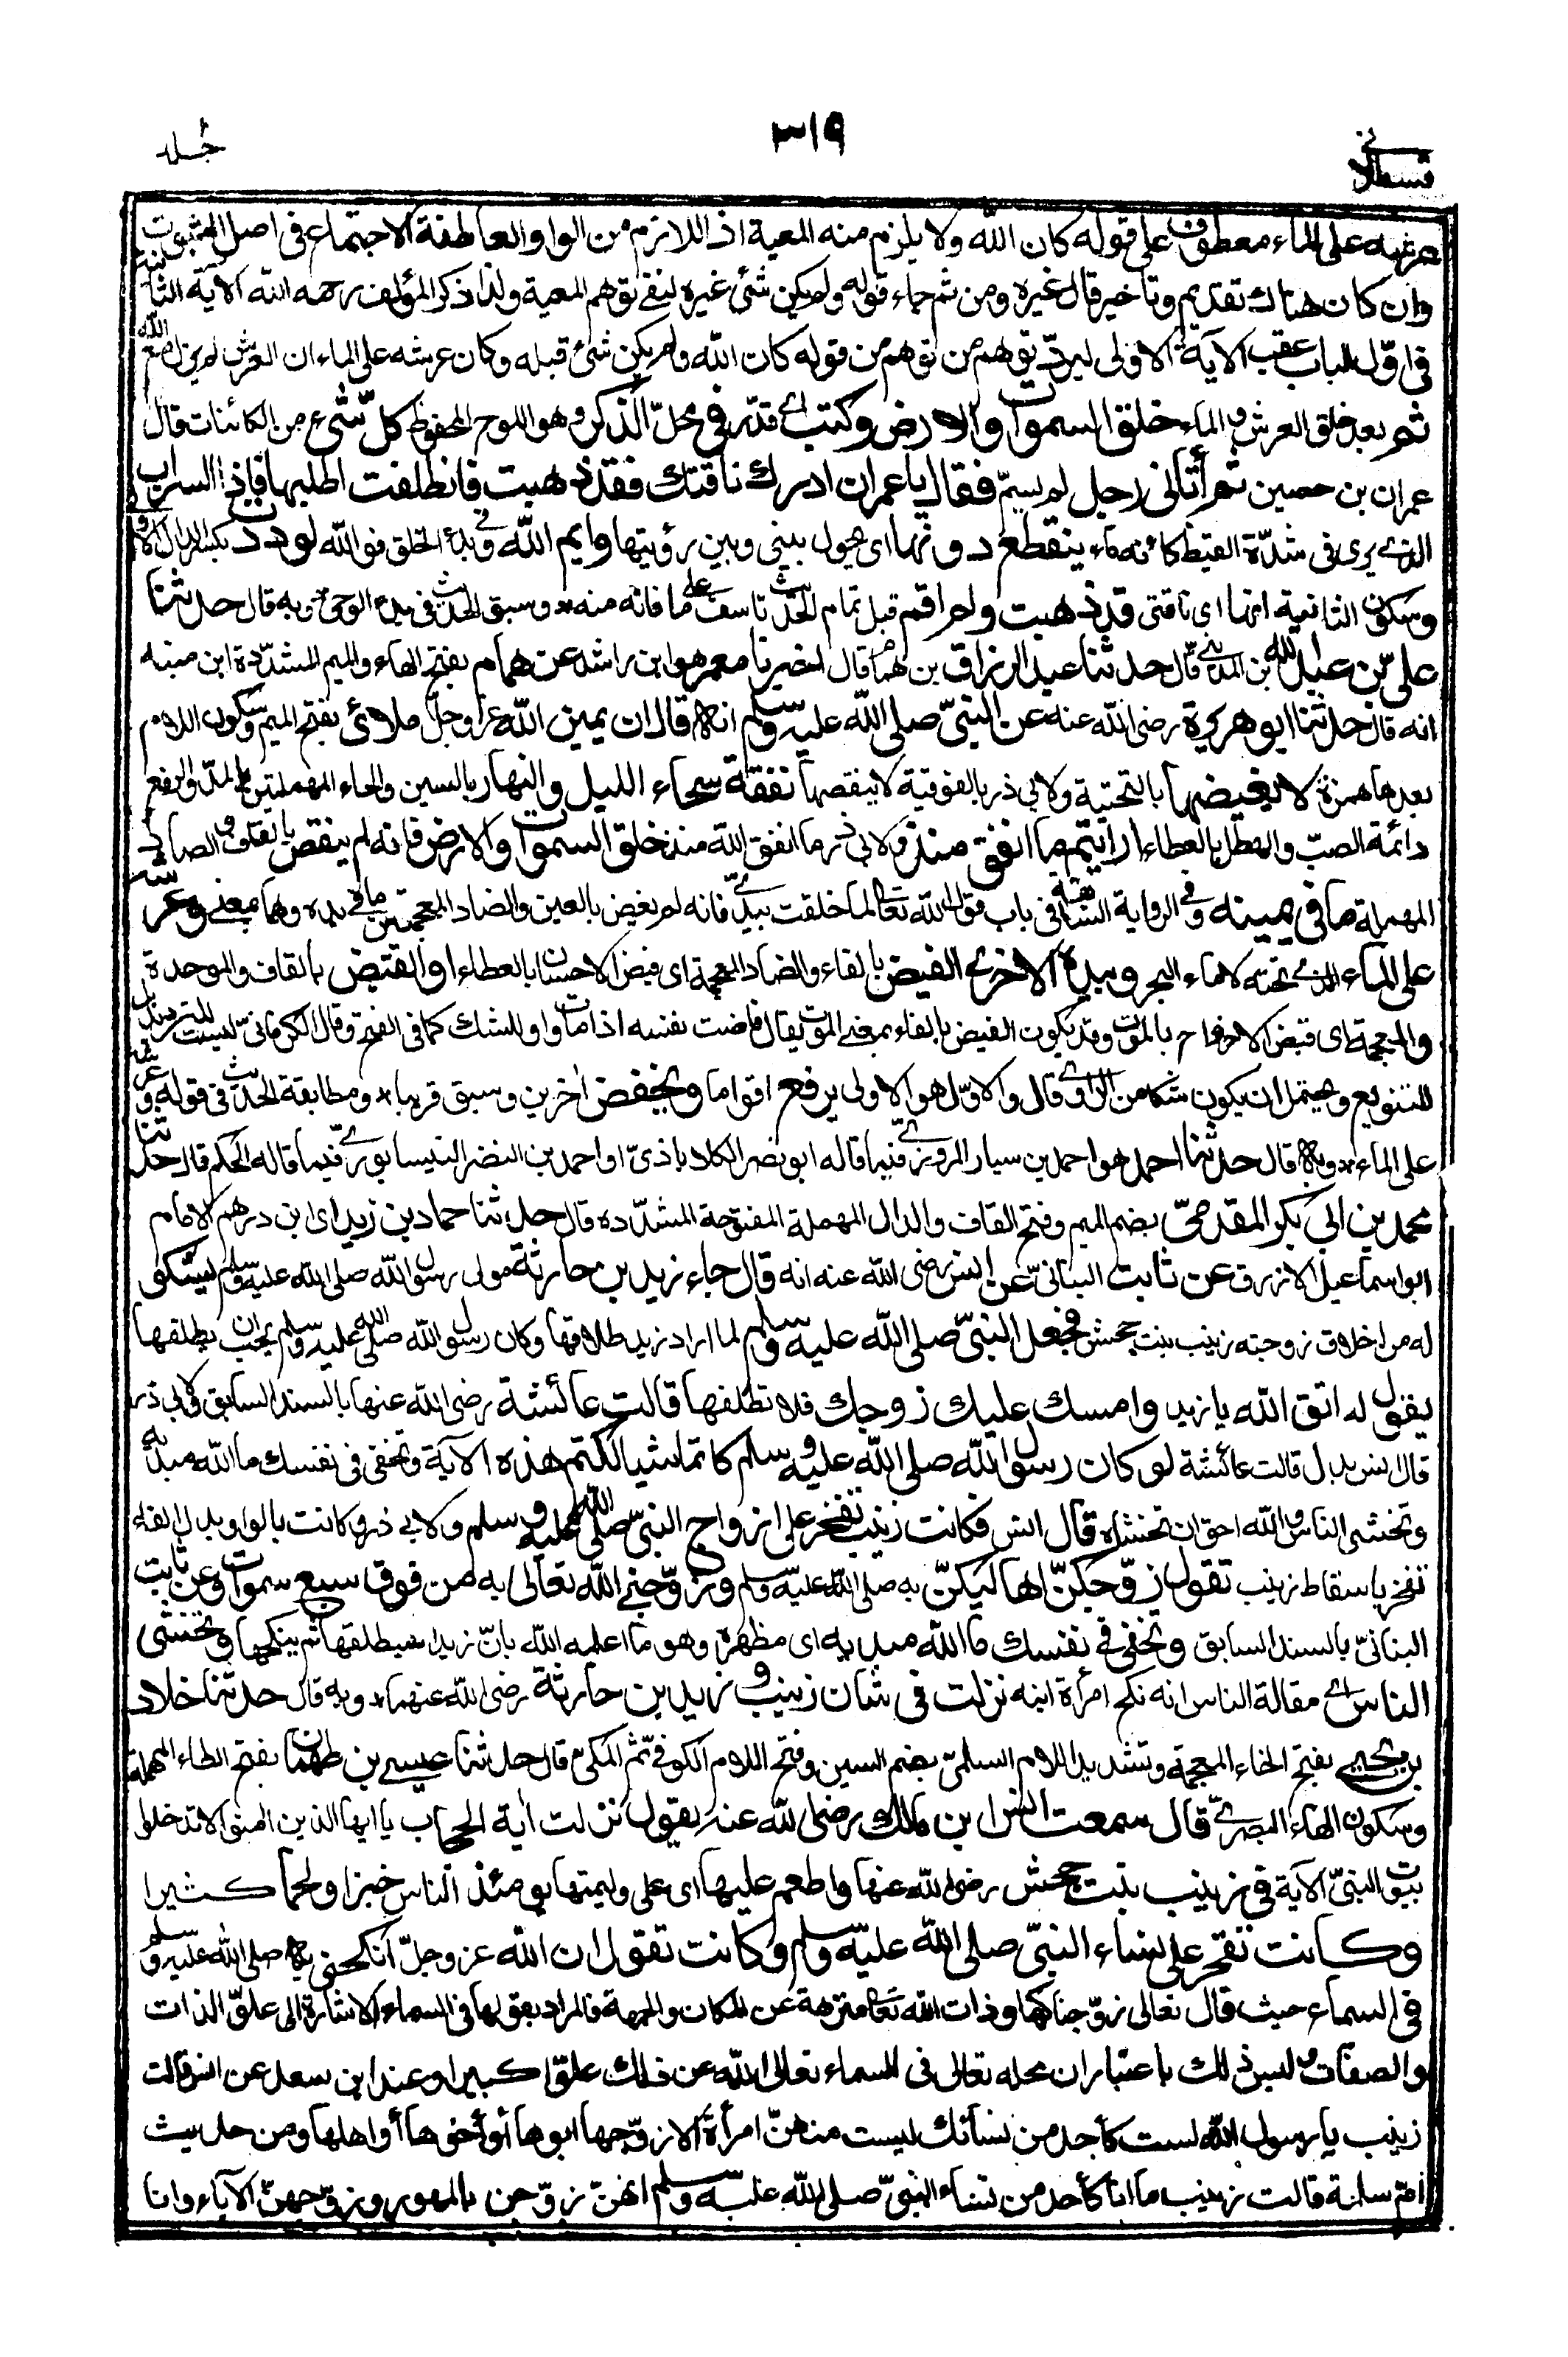 قسطلانى
٣١٩
عرشه على الماء معطوف على قوله كان الله ولا يلزم منه المعية اذ اللازم من الواو العاطفة الاجتماع فى اصل الثبوت
وان كان هناك تقديم وتأخير قال غيره ومن ثم جاء قوله ولم يكن شئ غيره لنفے توهم المعية ولذا ذكر المؤلف رحمه الله الآية الثانية
فى اوّل الباب عقب الآية الاولى ليردّ توهم من توهم من قوله كان الله ولم يكن شئ قبله وكان عرشه على الماء ان العرش لم يزل مع الله
ثم بعد خلق العرش والماء خلق السموات والارض وكتب اے قدّر فى محلّ الذكر وهو اللوح المحفوظ كلّ شىء من الكائنات قال
عمران بن حصين ثم أتانى رجل لم يسمّ فقال يا عمران ادرك ناقتك فقد ذهبت فانطلقت اطلبها فاذا السراب
الذے يرى فى شدّة القيظ كأنه ماء ينقطع دونها اى يحول بينى وبين رؤيتها وايم الله وفى بدء الخلق فوالله لوددت بكسر الدال الاولى
وسكون الثانية انها اى ناقتى قد ذهبت ولم اقم قبل تمام الحديث تأسف على ما فاته منه * وسبق الحديث فى بدء الوحى * وبه قال حدثنا
علىّ بن عبد الله بن المدينے قال حدثنا عبد الرزاق بن همام قال اخبرنا معمر هو ابن راشد عن همام بفتح الهاء والميم المشدّدة ابن منبه
انه قال حدثنا ابو هريرة رضى الله عنه عن النبىّ صلى الله عليه وسلم انه قال ان يمين الله عز وجلّ ملأى بفتح الميم وسكون اللام
بعدها همزة لا يغيضها بالتحتية ولابى ذر بالفوقية لا ينقصها نفقة سحاء الليل والنهار بالسين والحاء المهملتين بالمدّ والرفع
دائمة الصبّ والهطل بالعطاء ارايتم ما انفق منذ ولابى ذر ما انفق الله منذ خلق السموات والارض فانه لم ينقص بالقاف والصاد
المهملة ما فى يمينه وفى الرواية السابقة فى باب قول الله تعالى لما خلقت بيدىّ فانه لم يغض بالغين والضاد المعجمتين ما فى يده وهما بمعنى وعرشه
على الماء الذے تحته لا ماء البحر وبيده الاخرے الفيض بالفاء والضاد المعجمة اى فيض الاحسان بالعطاء او القبض بالقاف والموحدة
والمعجمة اى قبض الارواح بالموت وقد يكون الفيض بالفاء بمعنے الموت يقال فاضت نفسه اذا مات واو للشك كما فى الفتح وقال الكرمانىّ ليست للترديد بل
للتنويع ويحتمل ان يكون شكا من الراوے قال والاوّل هو الاولى يرفع اقواما ويخفض أخرين وسبق قريبا * ومطابقة الحديث فى قوله وعرشه
على الماء * وبه قال حدثنا احمد هو احمد بن سيار المروزےّ فيما قاله ابو نصر الكلاباذىّ او احمد بن النضر النيسابورےّ فيما قاله الحاكم قال حدثنا
محمد بن ابى بكر المقدمىّ بضم الميم وفتح القاف والدال المهملة المفتوحة المشدّده قال حدثنا حماد بن زيد اى ابن درهم الامام
ابو اسماعيل الازرق عن ثابت البنانىّ عن انس رضى الله عنه انه قال جاء زيد بن حارثة مولى رسول الله صلى الله عليه وسلم يشكو
له من اخلاق زوجته زينب بنت جحش فجعل النبىّ صلى الله عليه وسلم لما اراد زيد طلاقها وكان رسول الله صلى الله عليه وسلم يحب ان يطلقها
يقول له اتق الله يا زيد وامسك عليك زوجك فلا تطلقها قالت عائشة رضى الله عنها بالسند السابق ولابى ذر
قال انس بدل قالت عائشة لو كان رسول الله صلى الله عليه وسلم كاتما شيا لكتم هذه الآية وتخفى فى نفسك ما الله مبديه
وتخشى الناس والله احق ان تخشاه قال انس فكانت زينب تفخر على ازواج النبىّ صلى الله عليه وسلم ولابى ذر وكانت بالواو بدل الفاء
تفخر باسقاط زينب تقول زوّجكنّ اهاليكنّ به صلى الله عليه وسلم وزوّجنے الله تعالى به من فوق سبع سموات وعن ثابت
البنانىّ بالسند السابق وتخفى فى نفسك ما الله مبديه اى مظهره وهو ما اعلمه الله بانّ زيدا سيطلقها ثم ينكحها وتخشى
الناس اے مقالة الناس انه نكح امرأة ابنه نزلت فى شان زينب وزيد بن حارثة رضى الله عنهما * وبه قال حدثنا خلاد
بن يحيى بفتح الخاء المعجمة وتشديد اللام السلمىّ بضم السين وفتح اللام الكوفىّ ثم المكىّ قال حدثنا عيسے بن طهمان بفتح الطاء المهملة
وسكون الهاء البصرےّ قال سمعت انس ابن مالك رضى الله عنه يقول نزلت أية الحجاب يا ايها الذين امنوا لا تدخلوا
بيوت النبىّ الآية فى زينب بنت جحش رضى الله عنها واطعم عليها اى على وليمتها يومئذ الناس خبزا ولحما كثيرا
وكانت تفخر على نساء النبىّ صلى الله عليه وسلم وكانت تقول ان الله عز وجلّ أنكحنى به صلى الله عليه وسلم
فى السماء حيث قال تعالى زوّجناكها وذات الله تعالى منزهة عن المكان والجهة فالمراد بقولها فى السماء الاشارة الى علوّ الذات
والصفات وليس ذلك باعتبار ان محله تعالى فى السماء تعالى الله عن ذلك علوّا كبيرا وعند ابن سعد عن انس قالت
زينب يا رسول الله لست كأحد من نسائك ليست منهنّ امرأة الا زوّجها ابوها أو أخوها أو اهلها ومن حديث
امّ سلمة قالت زينب ما انا كأحد من نساء النبىّ صلى الله عليه وسلم انهنّ زوّجن بالمهور وزوّجهنّ الآباء وانا